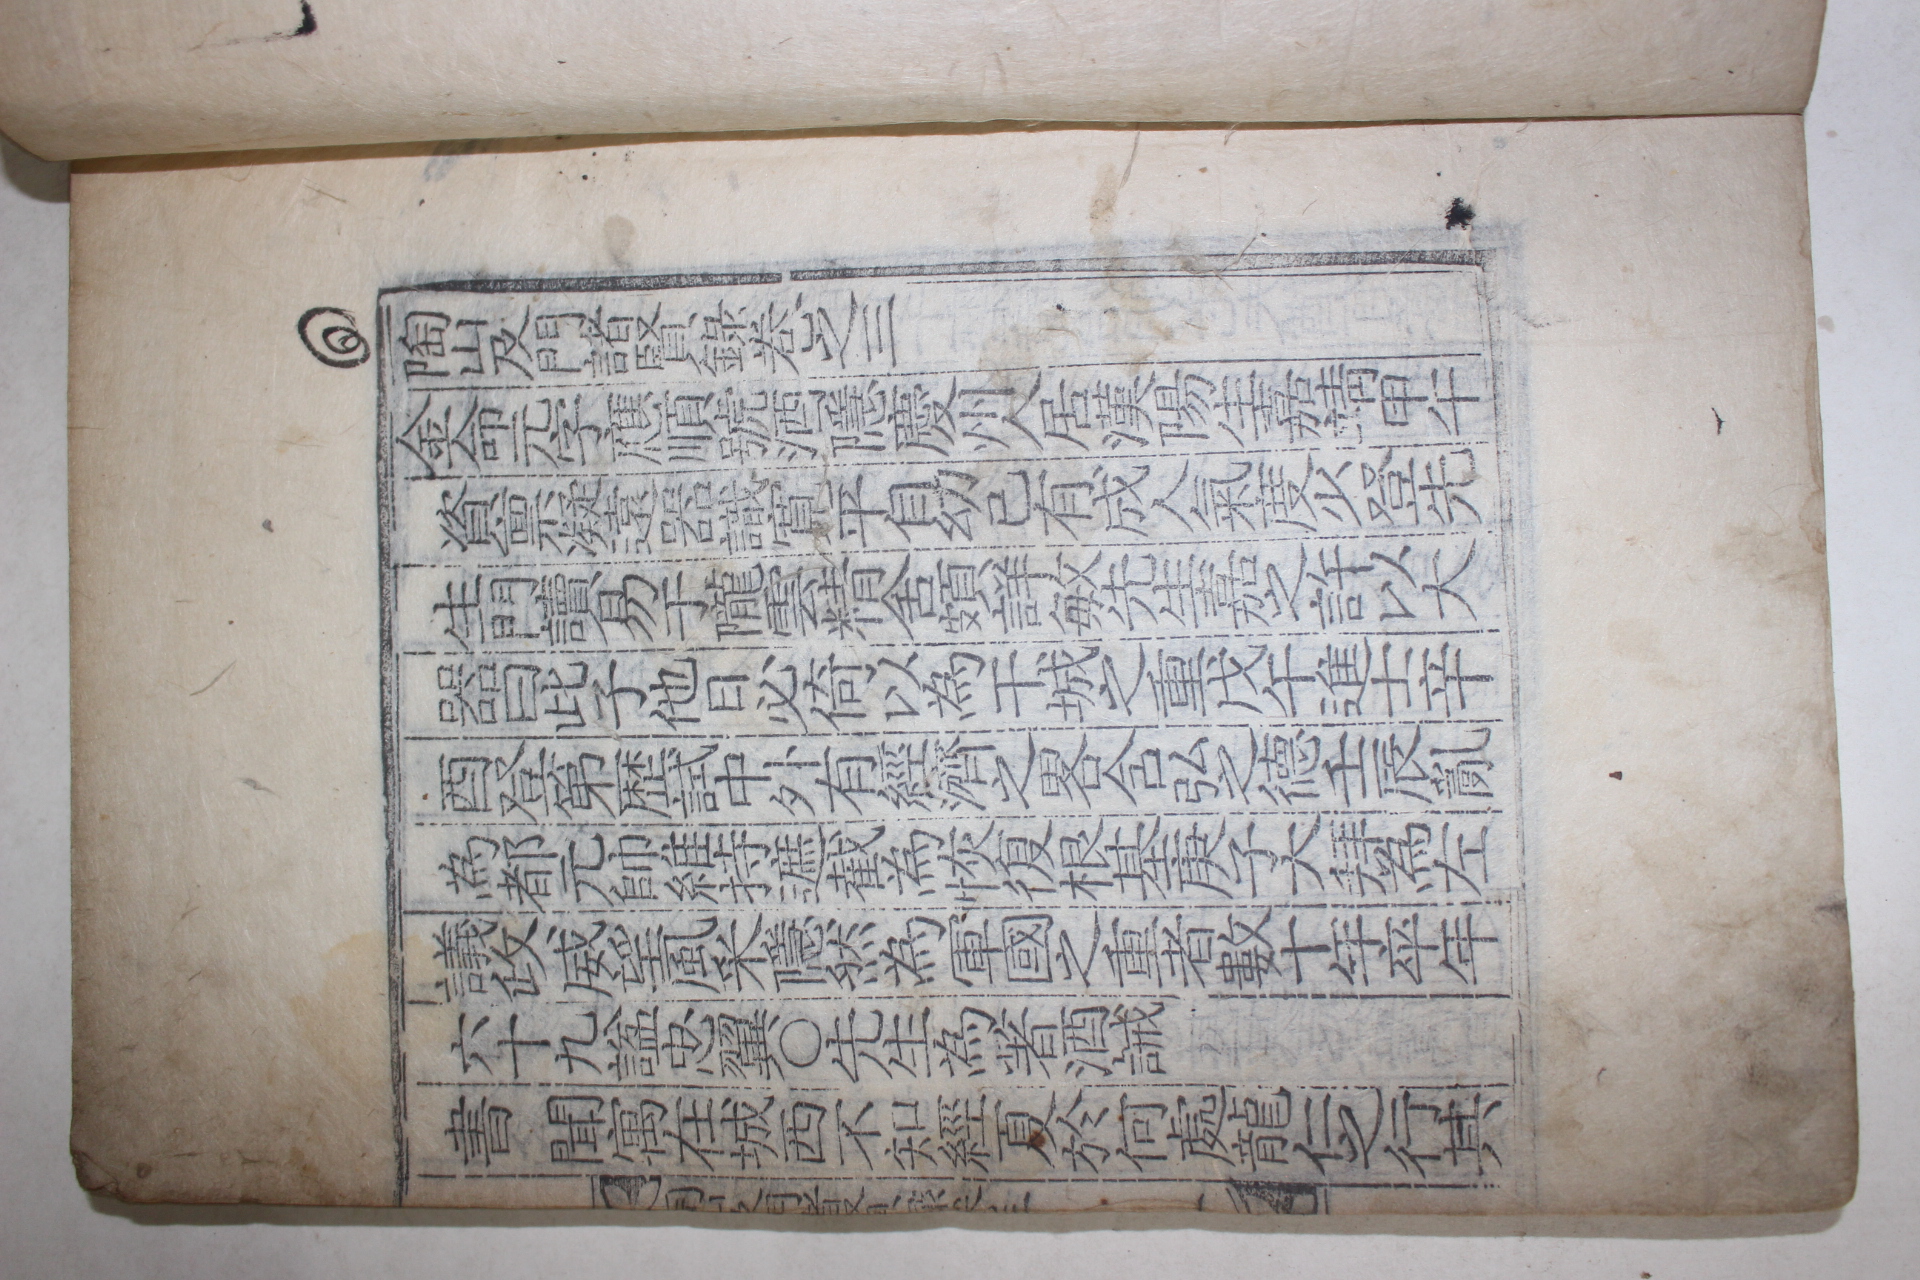 陶山及門諸賢錄卷之三
金命元字應順號酒隱慶州人居漢陽生嘉靖甲午
資稟凝遠器識寬平自幼已有成人氣度少登先
生門讀易于隴雲精舍頗詳敏先生嘉之許以大
器曰此子他日必倚以為干城之重戊午進士辛
酉登第歷試中外有經濟之畧含弘之德壬辰亂
為都元帥維持遮截為恢復根基庚子大拜為左
議政威望風采隱然為軍國之重者數十年卒年
六十九諡忠翼〇先生為著酒誡
書　聞寓在城西不知經夏於何處龍仁之行其